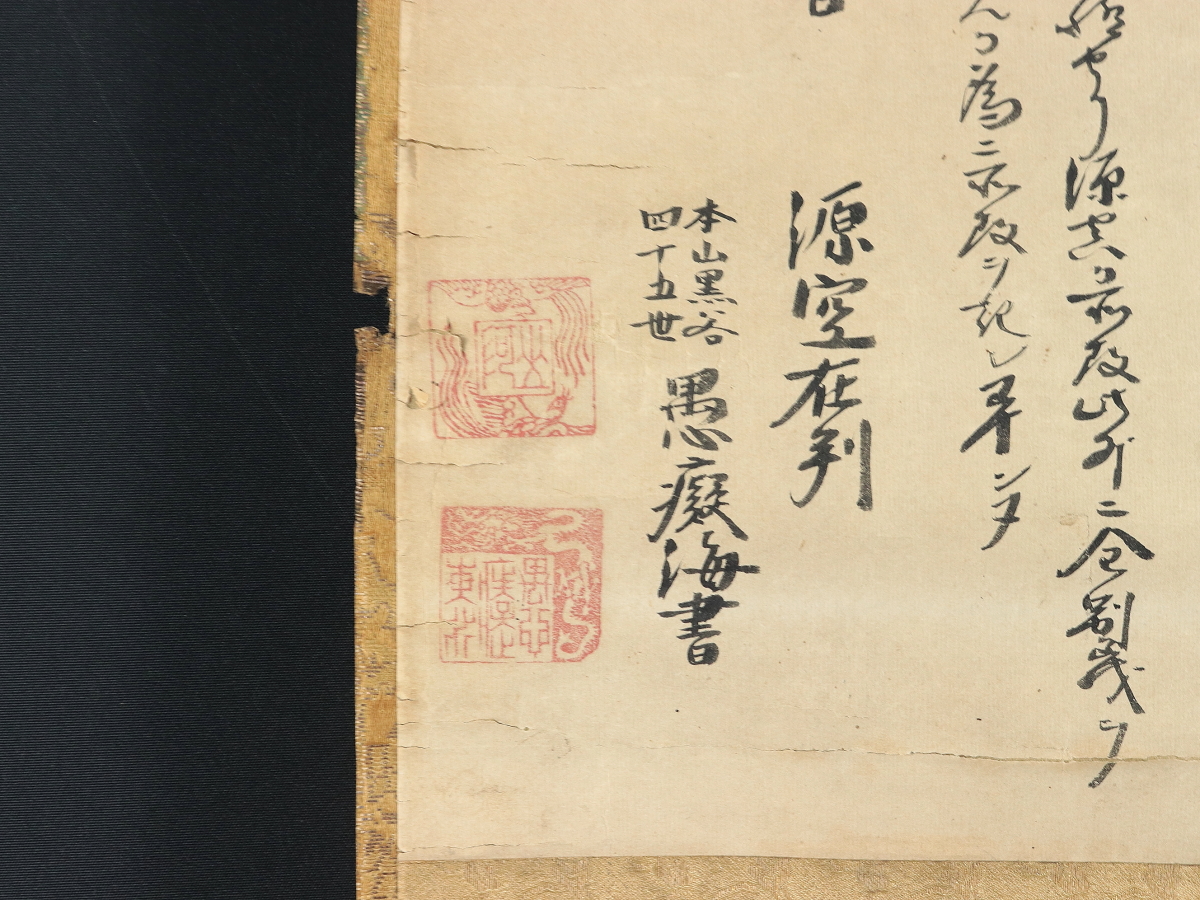 極セリ源空カ所存此外ニ全別義ヲ
カ為ニ所存ヲ記シ畢ンヌ
源空在判
本山黒谷
四十五世
愚癡海書